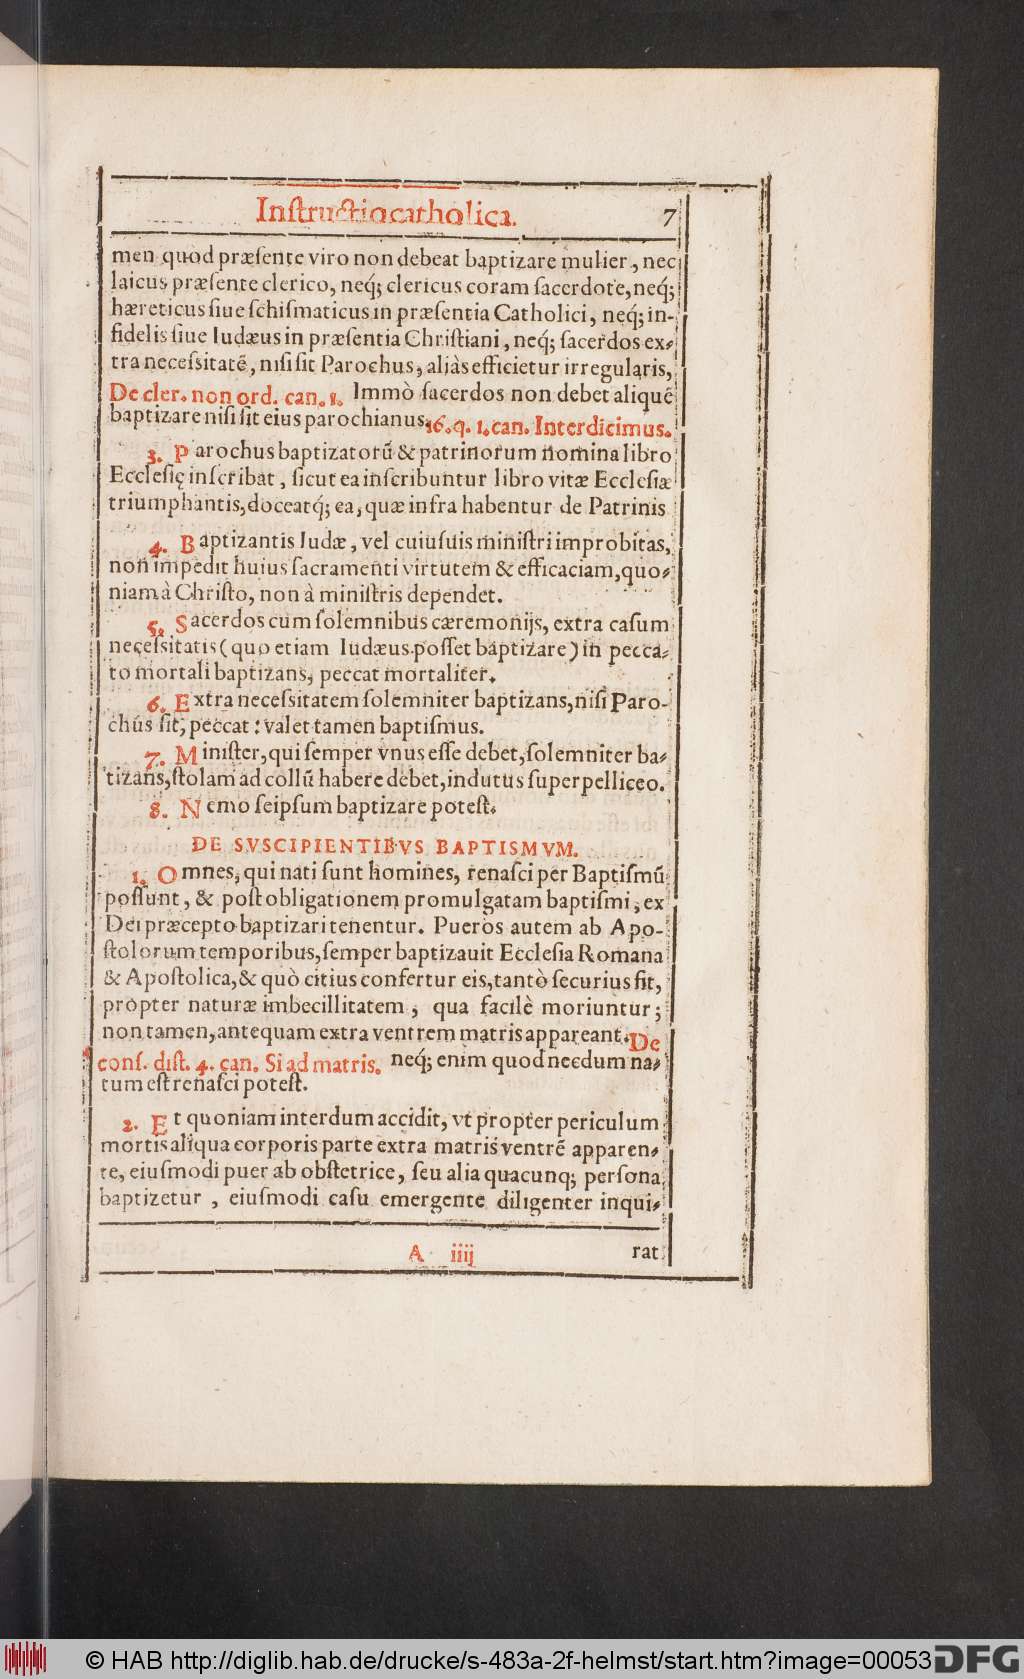 Instructio catholica. 7
men quod præsente viro non debeat baptizare mulier, nec
laicus præsente clerico, neq́; clericus coram sacerdote, neq́;
hæreticus siue schismaticus in præsentia Catholici, neq́; in-
fidelis siue Iudæus in præsentia Christiani, neq́; sacerdos ex-
tra necessitatē, nisi sit Parochus, aliàs efficietur irregularis,
De cler. non ord. can. 1. Immò sacerdos non debet aliquē
baptizare nisi sit eius parochianus, 16. q. 1. can. Interdicimus.
3. Parochus baptizatorū & patrinorum nomina libro
Ecclesię inscribat, sicut ea inscribuntur libro vitæ Ecclesiæ
triumphantis, doceatq́; ea, quæ infra habentur de Patrinis
4. Baptizantis Iudæ, vel cuiusuis ministri improbitas,
non impedit huius sacramenti virtutem & efficaciam, quo-
niam à Christo, non à ministris dependet.
5. Sacerdos cum solemnibus cæremonijs, extra casum
necessitatis (quo etiam Iudæus posset baptizare) in pecca-
to mortali baptizans, peccat mortaliter.
6. Extra necessitatem solemniter baptizans, nisi Paro-
chus sit, peccat: valet tamen baptismus.
7. Minister, qui semper vnus esse debet, solemniter ba-
tizans, stolam ad collū habere debet, indutus superpelliceo.
8. Nemo seipsum baptizare potest.
DE SVSCIPIENTIBVS BAPTISMVM.
1. Omnes, qui nati sunt homines, renasci per Baptismū
possunt, & post obligationem promulgatam baptismi, ex
Dei præcepto baptizari tenentur. Pueros autem ab Apo-
stolorum temporibus, semper baptizauit Ecclesia Romana
& Apostolica, & quò citius confertur eis, tantò securius fit,
propter naturæ imbecillitatem, qua facilè moriuntur;
non tamen, antequam extra ventrem matris appareant. De
cons. dist. 4. can. Si ad matris. neq́; enim quod necdum na-
tum est renasci potest.
2. Et quoniam interdum accidit, vt propter periculum
mortis aliqua corporis parte extra matris ventrē apparen-
te, eiusmodi puer ab obstetrice, seu alia quacunq; persona
baptizetur, eiusmodi casu emergente diligenter inqui-
A iiij rat
© HAB http://diglib.hab.de/drucke/s-483a-2f-helmst/start.htm?image=00053
DFG